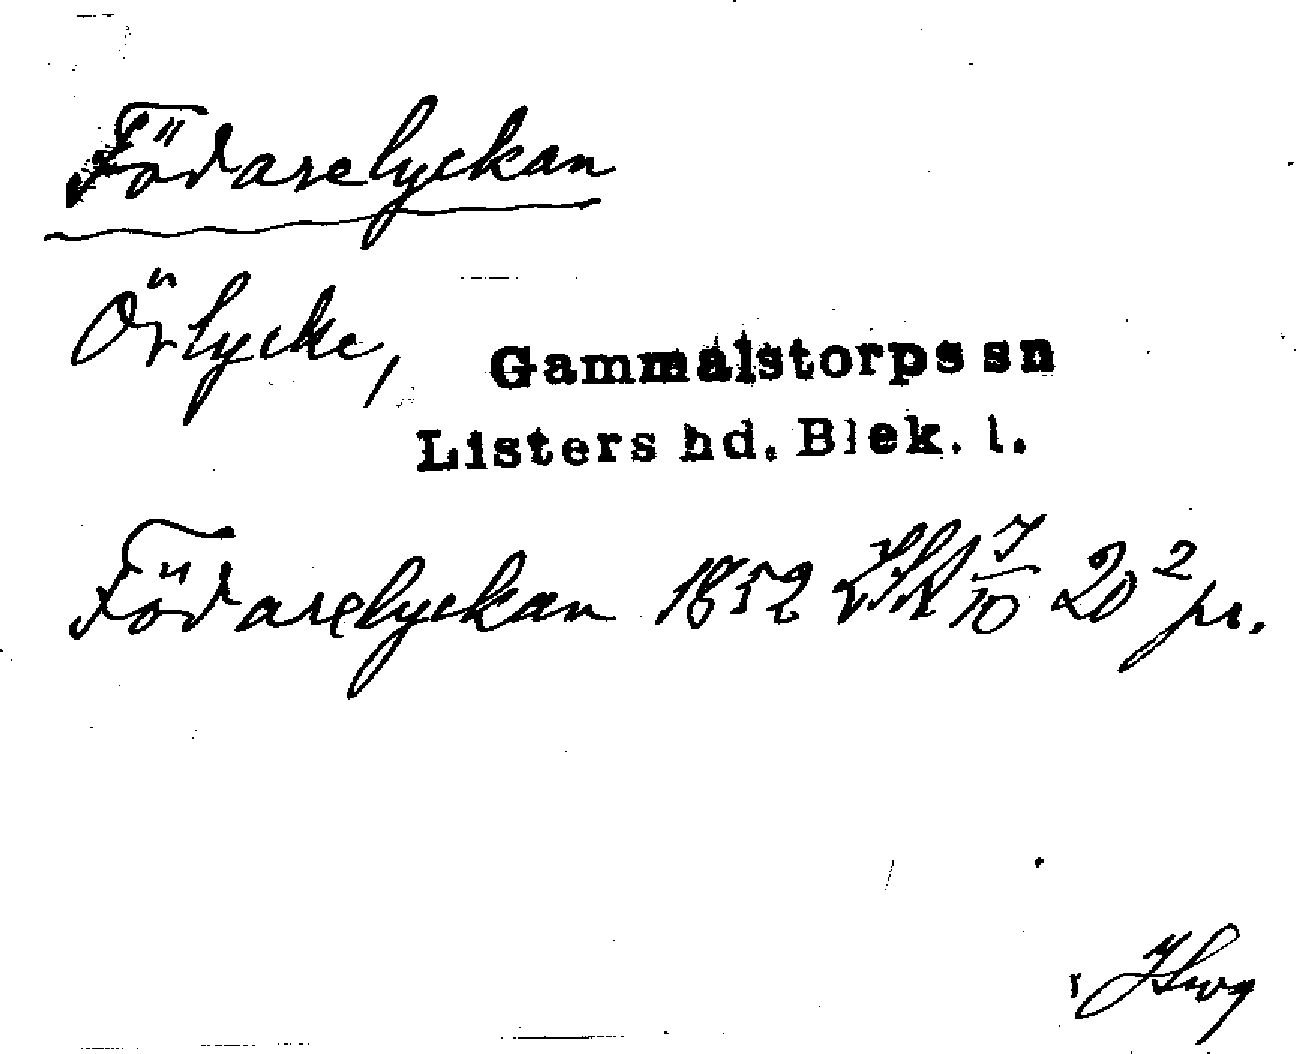 Födarelyckan
Örlycke,
Gammalstorps sn
Listers hd. Blek. l.
Födarelyckan 1852 LSA 7/10 20² pr.